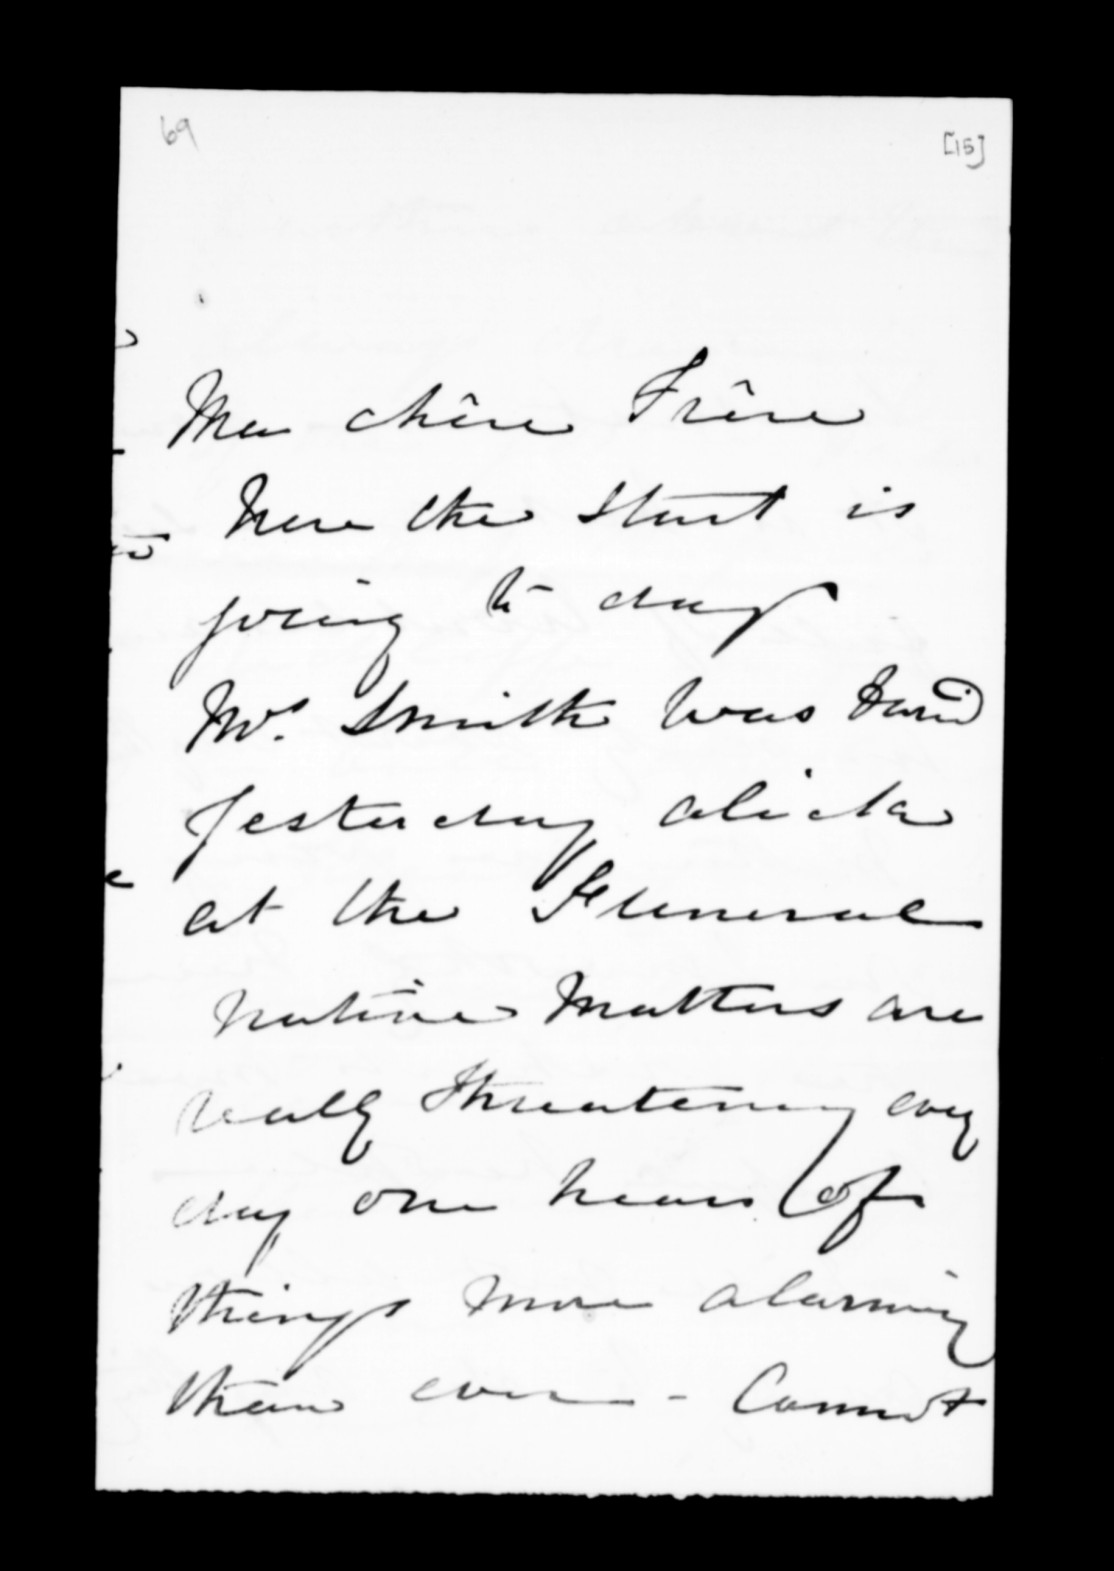 69
[15]
Mon chêre Frêre
here the Sturt is
going to day
Mrs. Smith was buried
yesterday alick
at the Funeral
native matters are
really threatening every
day one hears of
things more alarming
than ever - Cannot